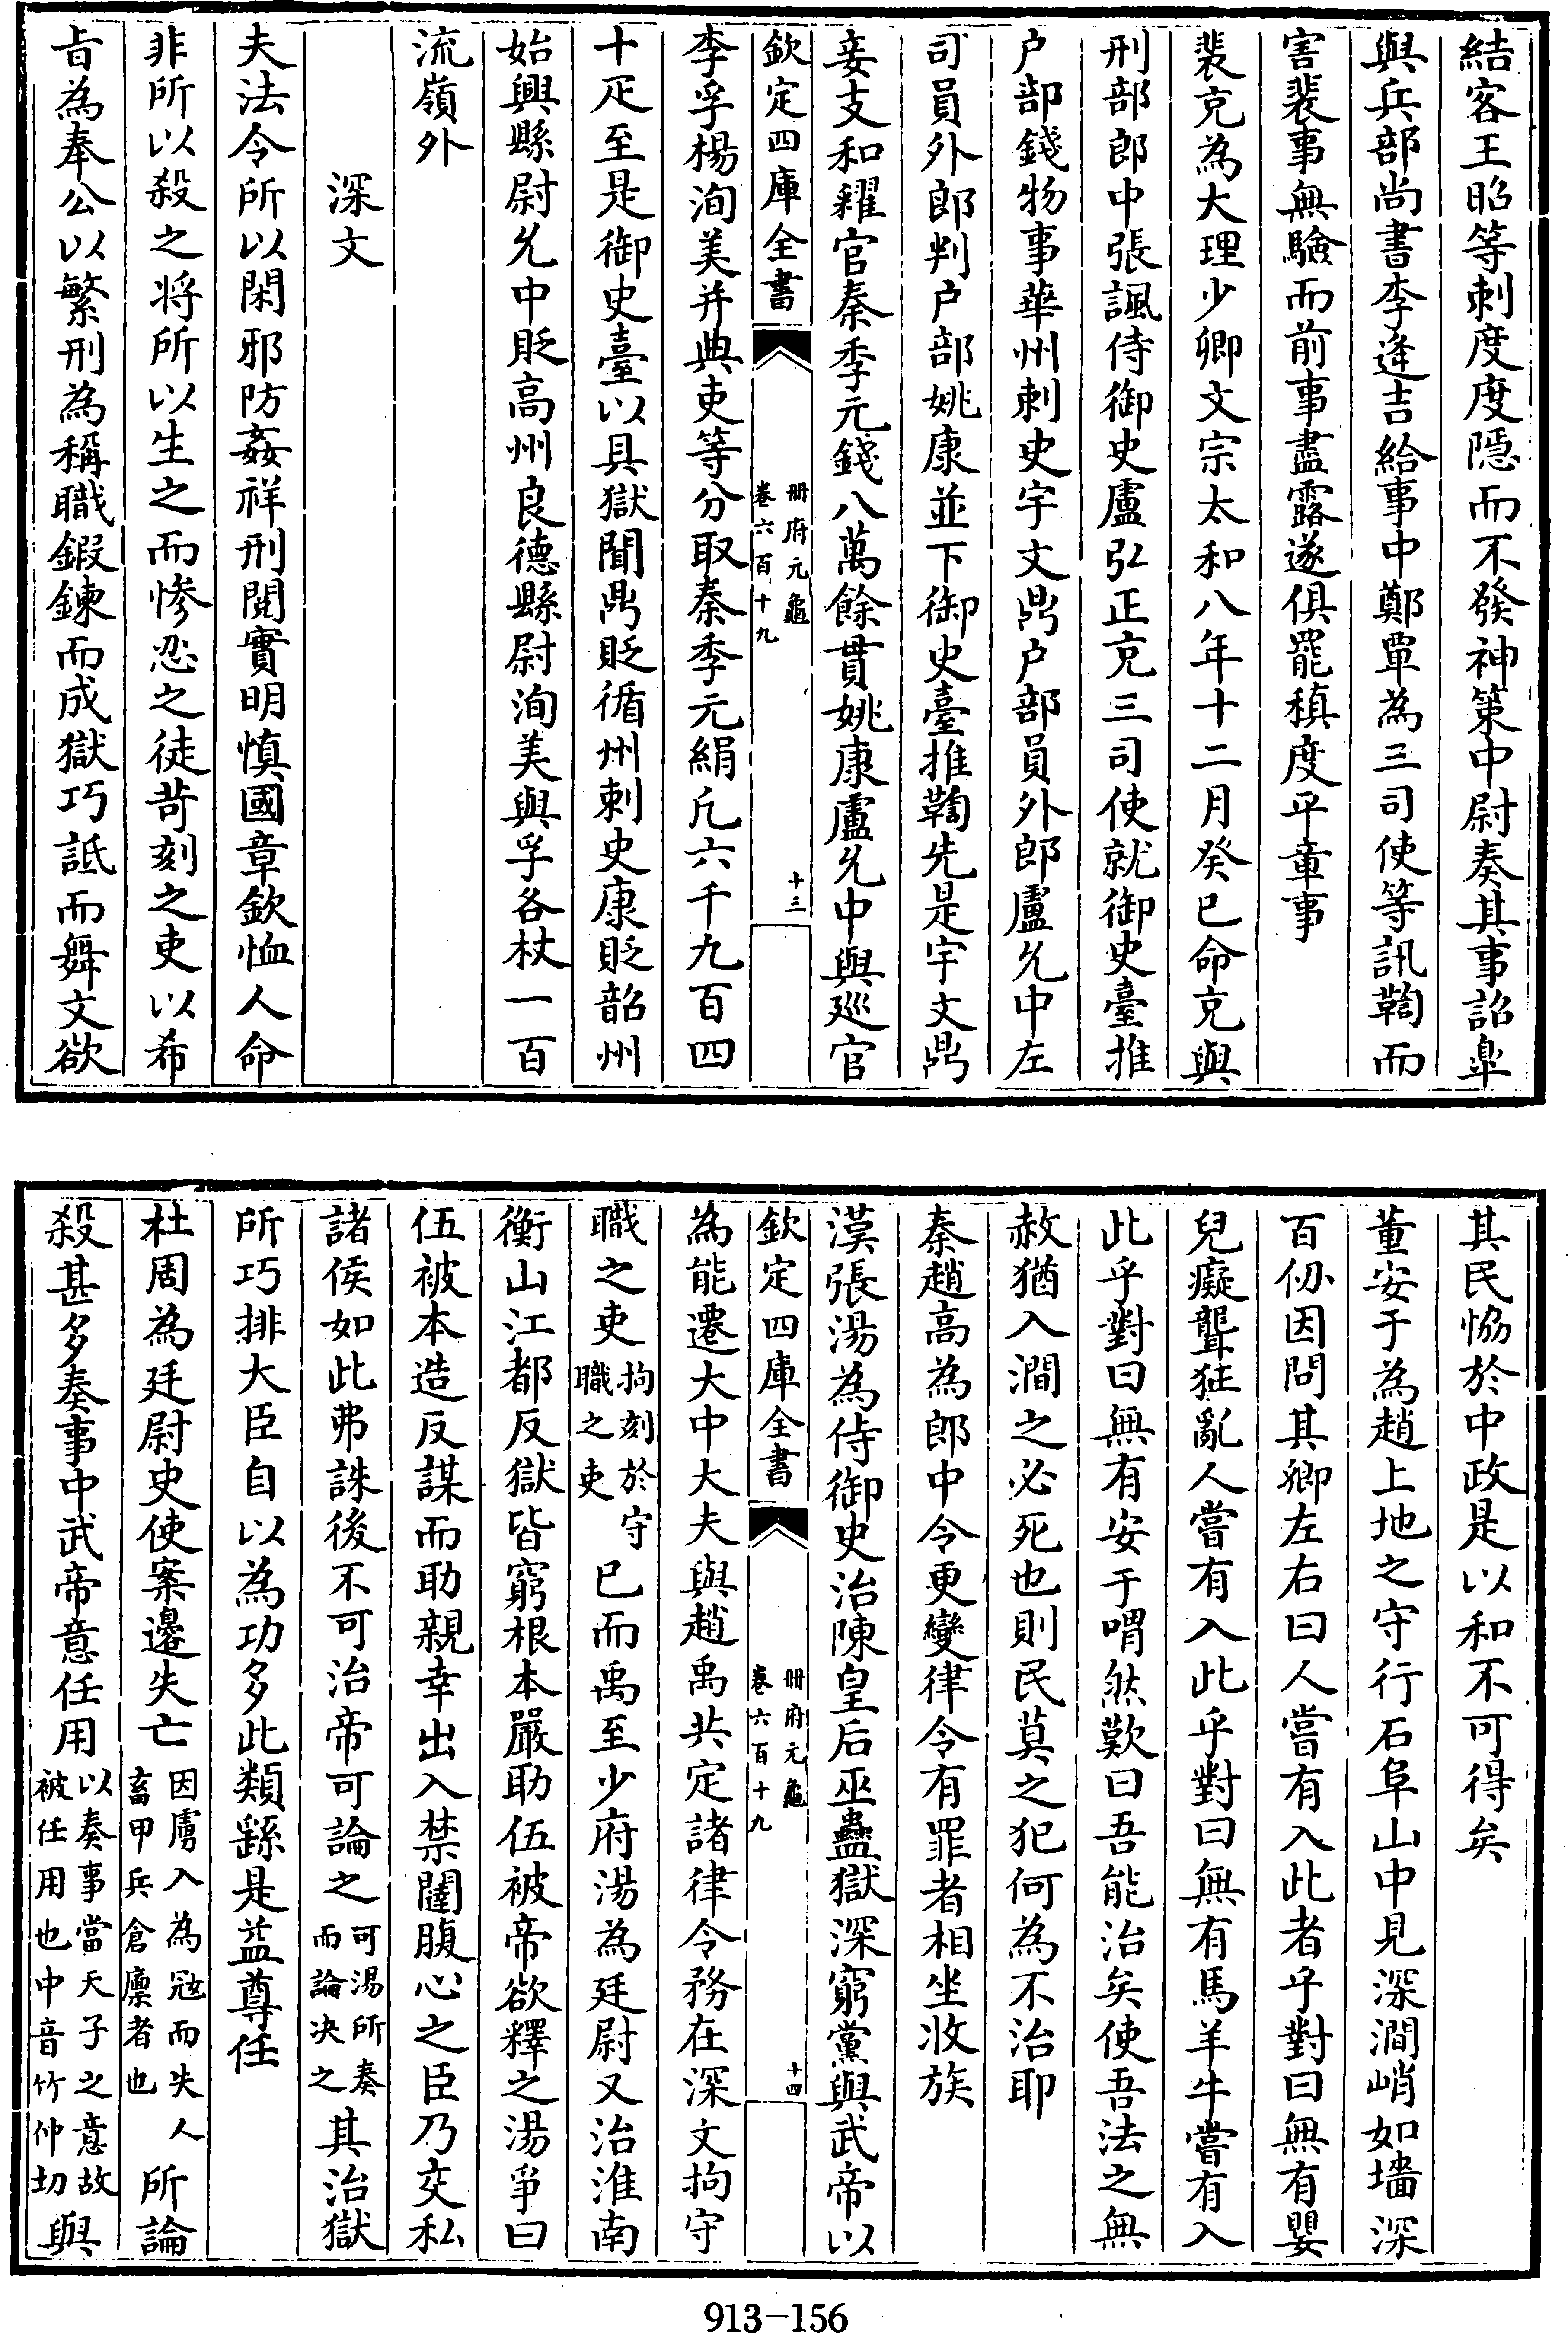 結客王昭等刺度度隱而不發神策中尉奏其事詔臯
與兵部尚書李逢吉給事中鄭覃為三司使等訊鞫而
害裴事無驗而前事盡露遂俱罷稹度平章事
裴充為大理少卿文宗太和八年十二月癸巳命充與
刑部郎中張諷侍御史盧弘正充三司使就御史臺推
户部錢物事華州刺史宇文鼎户部員外郎盧允中左
司員外郎判户部姚康並下御史臺推鞫先是宇文鼎
妾支和糴官秦季元錢八萬餘貫姚康盧允中與廵官
欽定四庫全書
冊府元龜
卷六百十九
十三
李孚楊洵美并典吏等分取秦季元絹凡六千九百四
十疋至是御史臺以具獄聞鼎貶循州刺史康貶韶州
始興縣尉允中貶高州良德縣尉洵美與孚各杖一百
流嶺外
深文
夫法令所以閑邪防姦祥刑閱實明慎國章欽恤人命
非所以殺之將所以生之而慘忍之徒苛刻之吏以希
旨為奉公以繁刑為稱職鍛鍊而成獄巧詆而舞文欲
其民恊於中政是以和不可得矣
董安于為趙上地之守行石阜山中見深澗峭如墻深
百仞因問其鄉左右曰人嘗有入此者乎對曰無有嬰
兒癡聾狂亂人嘗有入此乎對曰無有馬羊牛嘗有入
此乎對曰無有安于喟然歎曰吾能治矣使吾法之無
赦猶入澗之必死也則民莫之犯何為不治耶
秦趙高為郎中令更變律令有罪者相坐收族
漢張湯為侍御史治陳皇后巫蠱獄深窮黨與武帝以
欽定四庫全書
冊府元龜
卷六百十九
十四
為能遷大中大夫與趙禹共定諸律令務在深文拘守
職之吏拘刻於守職之吏已而禹至少府湯為廷尉又治淮南
衡山江都反獄皆窮根本嚴助伍被帝欲釋之湯爭曰
伍被本造反謀而助親幸出入禁闥腹心之臣乃交私
諸侯如此弗誅後不可治帝可論之可湯所奏而論决之其治獄
所巧排大臣自以為功多此類繇是益尊任
杜周為廷尉史使案邊失亡因虜入為冦而失人畜甲兵倉廩者也所論
殺甚多奏事中武帝意任用以奏事當天子之意故被任用也中音竹仲切與
913-156